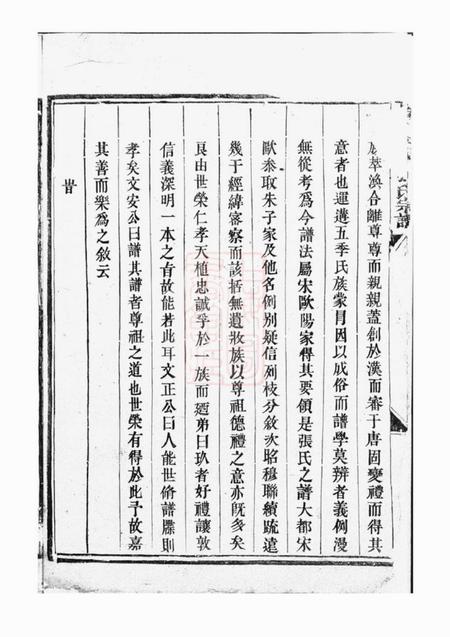 萃渙合離尊尊而親親蓋創於漢而審于唐固變禮而得其
意者也運遘五季氏族蒙冒因以成俗而譜學莫辨者義例漫
無從考為今譜法屬宋歐陽家得其要領是張氏之譜大都宋
歐叅取朱子家及他名例別疑信列枝分敘次昭穆聯續疏遠
幾于經緯密察而該括無遺收族以尊祖德禮之意亦既多矣
良由世榮仁孝天植忠誠孚於一族而廼弟曰玖者好禮讓敦
信義深明一本之旨故能若此耳文正公曰人能世脩譜牒則
孝矣文安公曰譜其譜者尊祖之道也世榮有得於此予故嘉
其善而樂為之敘云
旹
氏宗譜